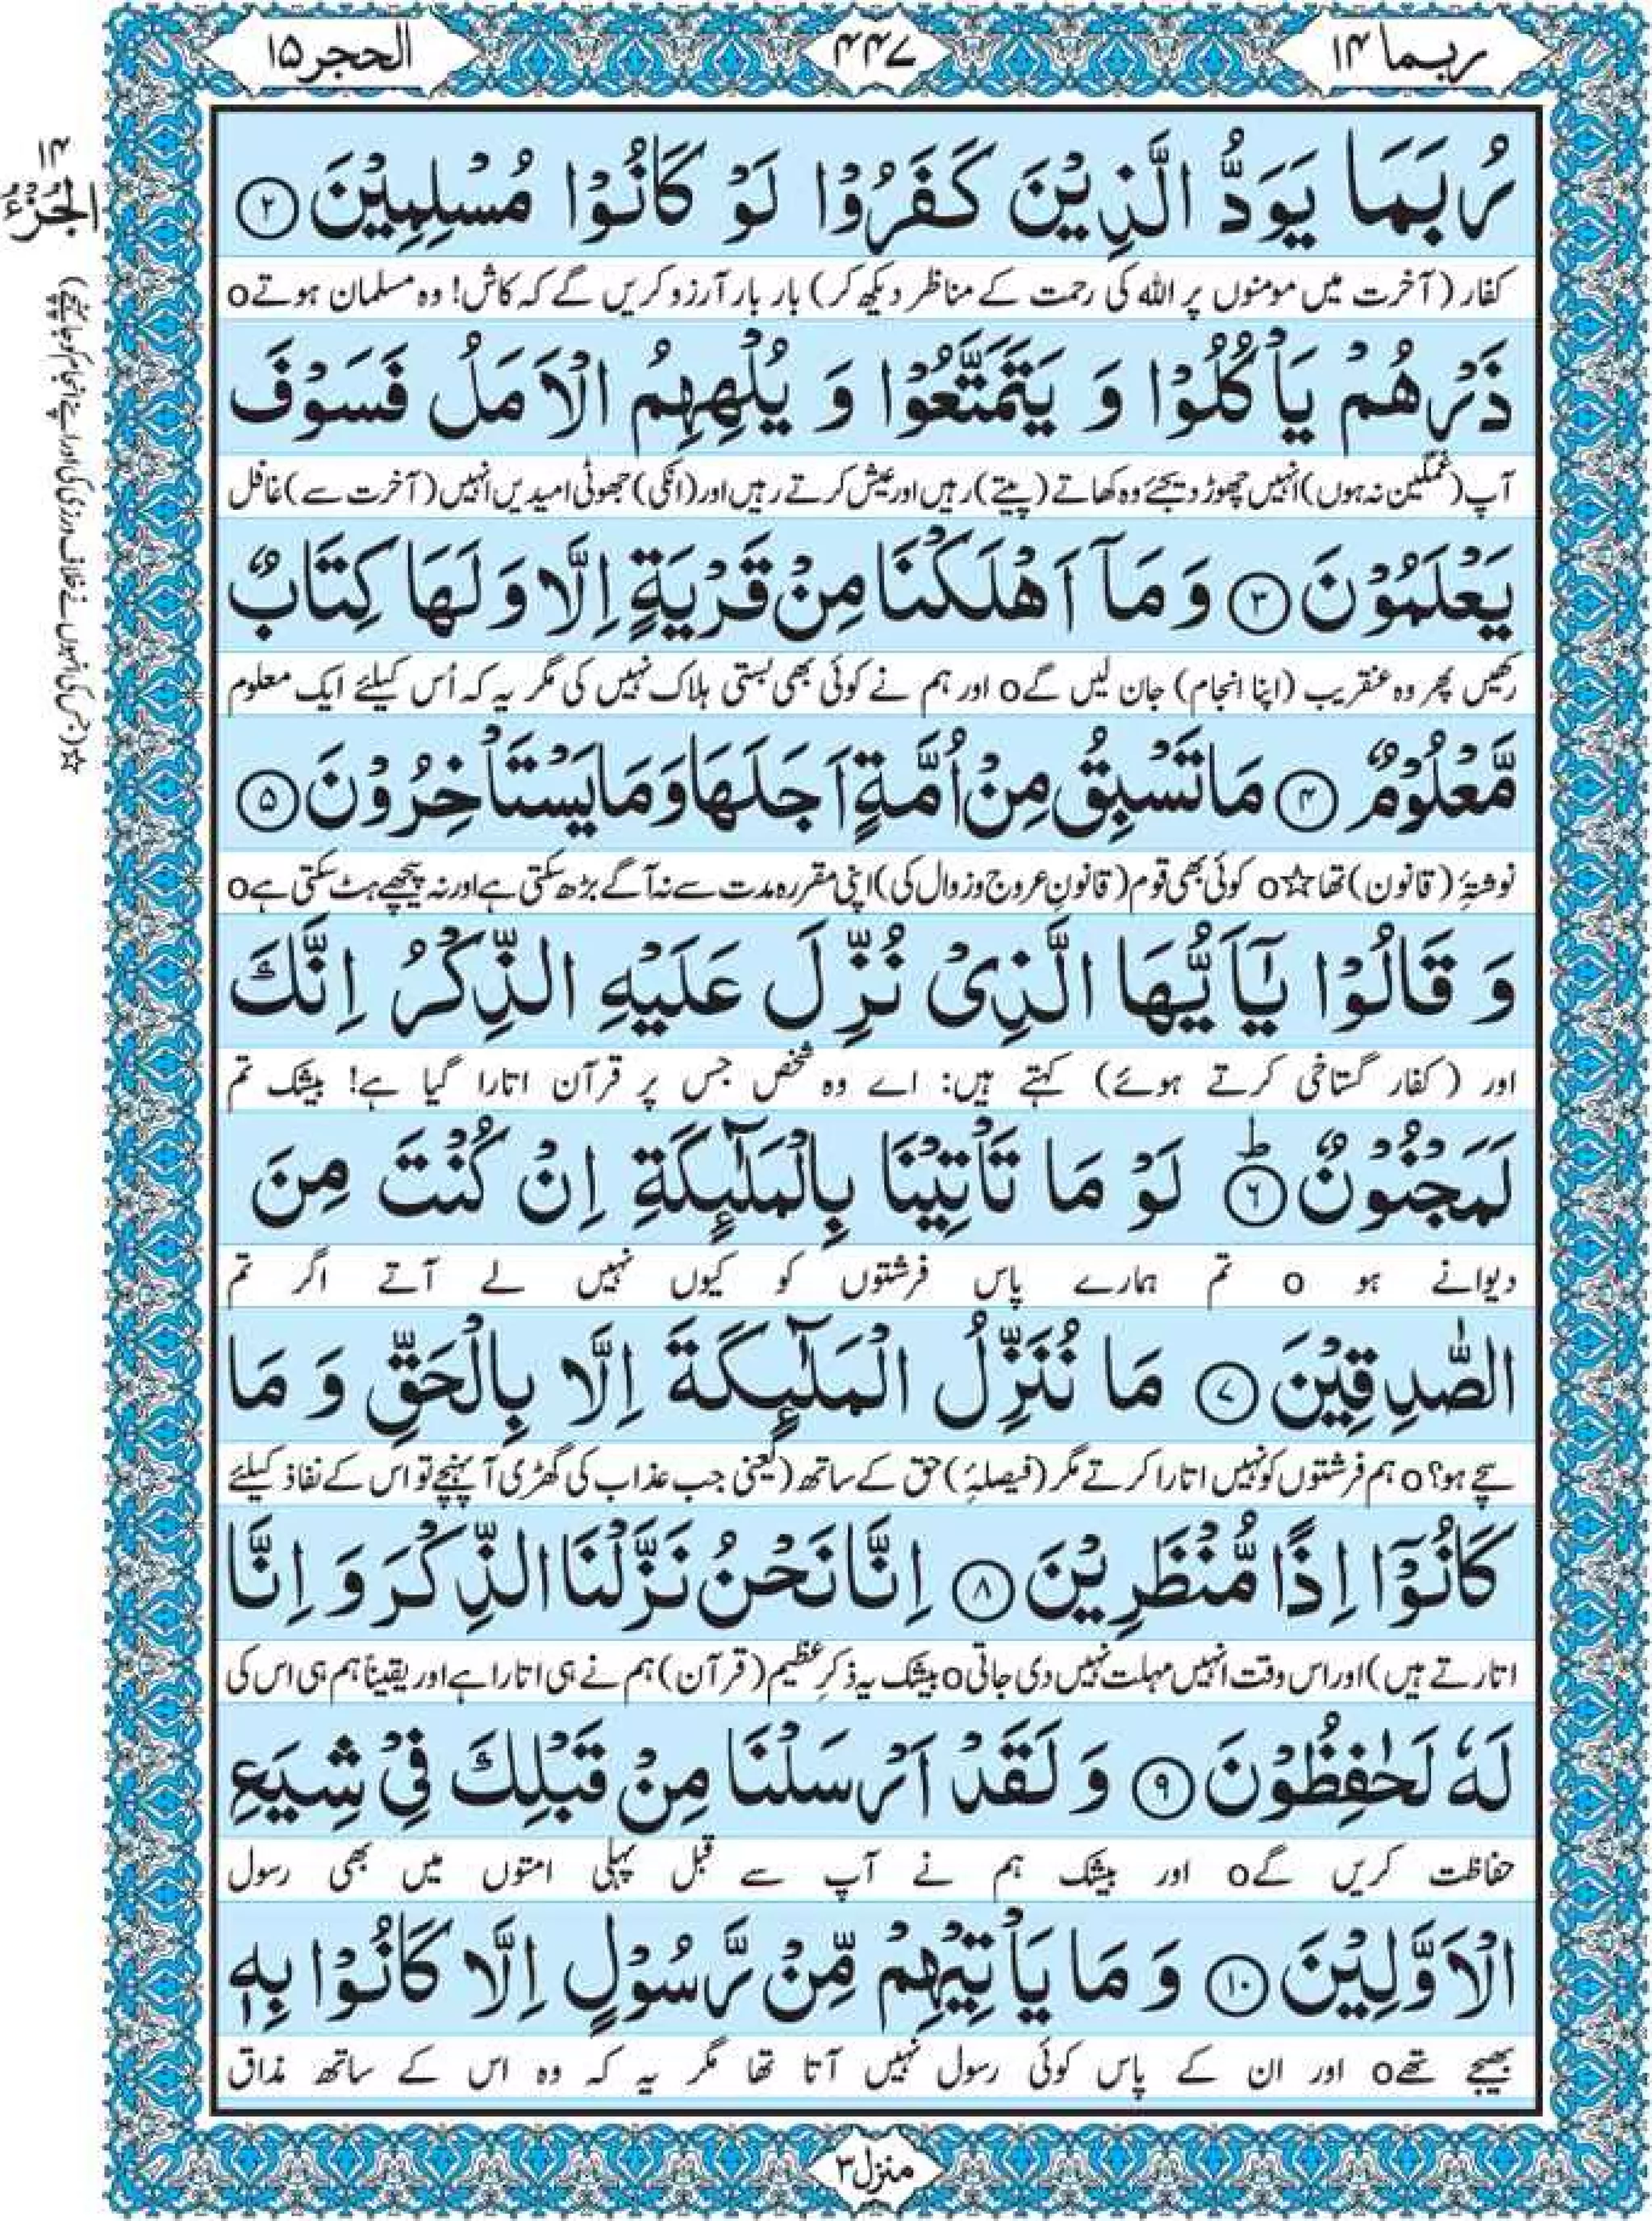 ربما ۱۴
۴۴۷
الحجر ۱۵
رُبَمَا يَوَدُّ الَّذِيْنَ كَفَرُوْا لَوْ كَانُوْا مُسْلِمِيْنَ ﴿۲﴾
کفار (آخرت میں مومنوں پر اللہ کی رحمت کے مناظر دیکھ کر) بار بار آرزو کریں گے کہ کاش! وہ مسلمان ہوتے o
ذَرْهُمْ يَاْكُلُوْا وَ يَتَمَتَّعُوْا وَ يُلْهِهِمُ الْاَمَلُ فَسَوْفَ
آپ (غمگین نہ ہوں) انہیں چھوڑ دیجئے وہ کھاتے (پیتے) رہیں اور عیش کرتے رہیں اور (انکی) جھوٹی امیدیں انہیں (آخرت سے) غافل
يَعْلَمُوْنَ ﴿۳﴾ وَ مَآ اَهْلَكْنَا مِنْ قَرْيَةٍ اِلَّا وَلَهَا كِتَابٌ
رکھیں پھر وہ عنقریب (اپنا انجام) جان لیں گے o اور ہم نے کوئی بھی بستی ہلاک نہیں کی مگر یہ کہ اُس کیلئے ایک معلوم
مَّعْلُوْمٌ ﴿۴﴾ مَا تَسْبِقُ مِنْ اُمَّةٍ اَجَلَهَا وَمَا يَسْتَاْخِرُوْنَ ﴿۵﴾
نوشتۂ (قانون) تھا ☆ o کوئی بھی قوم (قانونِ عروج و زوال کی) اپنی مقررہ مدت سے نہ آگے بڑھ سکتی ہے اور نہ پیچھے ہٹ سکتی ہے o
وَ قَالُوْا يٰٓاَيُّهَا الَّذِيْ نُزِّلَ عَلَيْهِ الذِّكْرُ اِنَّكَ
اور (کفار گستاخی کرتے ہوئے) کہتے ہیں: اے وہ شخص جس پر قرآن اتارا گیا ہے! بیشک تم
لَمَجْنُوْنٌ ﴿۶﴾ؕ لَوْ مَا تَاْتِيْنَا بِالْمَلٰٓئِكَةِ اِنْ كُنْتَ مِنَ
دیوانے ہو o تم ہمارے پاس فرشتوں کو کیوں نہیں لے آتے اگر تم
الصّٰدِقِيْنَ ﴿۷﴾ مَا نُنَزِّلُ الْمَلٰٓئِكَةَ اِلَّا بِالْحَقِّ وَ مَا
سچے ہو؟ o ہم فرشتوں کو نہیں اتارا کرتے مگر (فیصلۂ) حق کے ساتھ (یعنی جب عذاب کی گھڑی آ پہنچے تو اس کے نفاذ کیلئے
كَانُوْٓا اِذًا مُّنْظَرِيْنَ ﴿۸﴾ اِنَّا نَحْنُ نَزَّلْنَا الذِّكْرَ وَ اِنَّا
اتارتے ہیں) اور اس وقت انہیں مہلت نہیں دی جاتی o بیشک یہ ذکرِ عظیم (قرآن) ہم نے ہی اتارا ہے اور یقیناً ہم ہی اس کی
لَهٗ لَحٰفِظُوْنَ ﴿۹﴾ وَ لَقَدْ اَرْسَلْنَا مِنْ قَبْلِكَ فِيْ شِيَعِ
حفاظت کریں گے o اور بیشک ہم نے آپ سے قبل پہلی امتوں میں بھی رسول
الْاَوَّلِيْنَ ﴿۱۰﴾ وَ مَا يَاْتِيْهِمْ مِّنْ رَّسُوْلٍ اِلَّا كَانُوْا بِهٖ
بھیجے تھے o اور ان کے پاس کوئی رسول نہیں آتا تھا مگر یہ کہ وہ اس کے ساتھ مذاق
منزل ۳
الجزء ۱۴
☆ (جس کی انہوں نے خلاف ورزی کی اور اپنے انجام کو جا پہنچے)